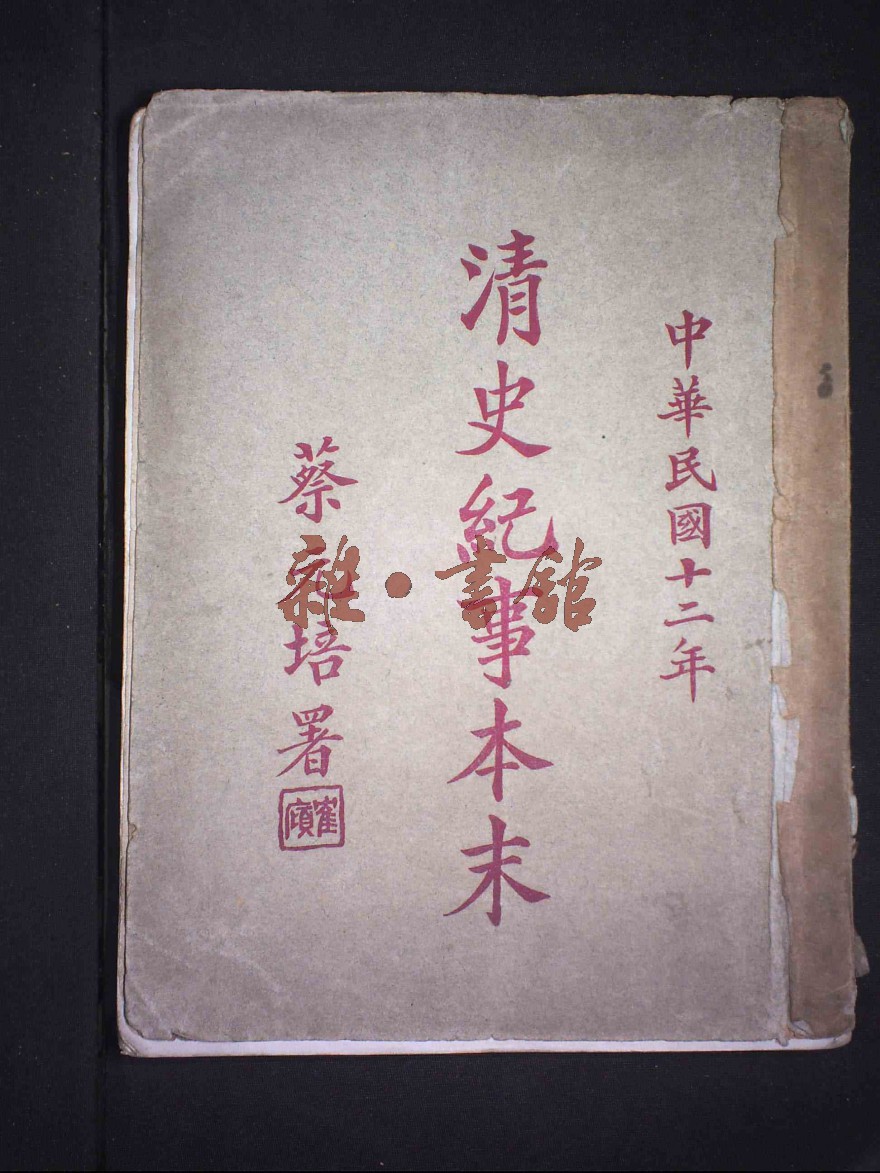 中華民國十二年
清史紀事本末
蔡元培署
雜·書館